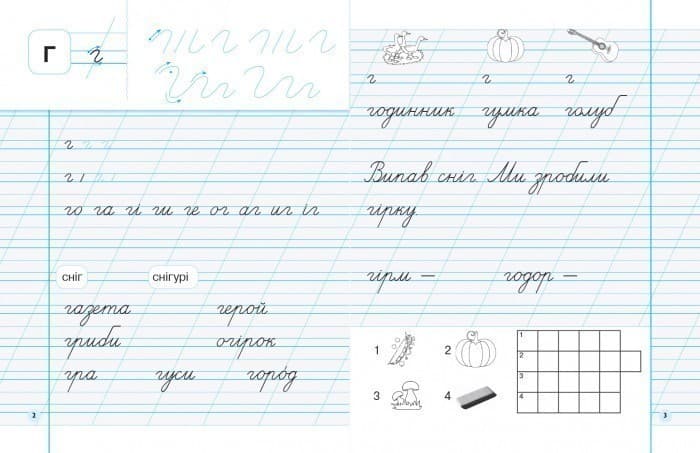 Г г
г
г і
го га гі ги ге ог аг иг іг
сніг снігурі
газета герой
гриби огірок
гра гуси горо́д
2
г г г
годинник гумка голуб
Випав сніг. Ми зробили
гірку.
гірм — годор —
1 2
3 4
1
2
3
4
3